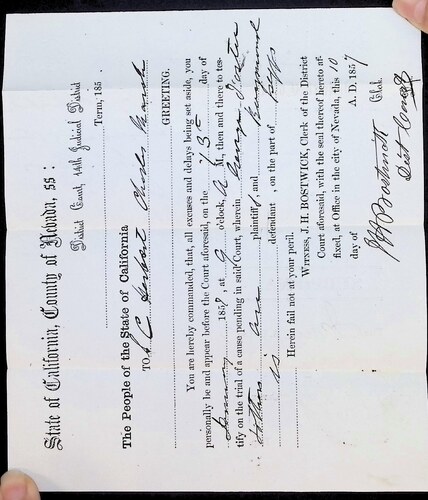 State of California, County of Nevada, ss:
District Court, 14th Judicial District
Term, 185 .
The People of the State of California
TO C Herbert Charles Marsh
GREETING.
You are hereby commanded, that, all excuses and delays being set aside, you
personally be and appear before the Court aforesaid, on the 13th day of
January 1858, at 9 o'clock, A M, then and there to tes-
tify on the trial of a cause pending in said Court, wherein George
others is are plaintiff, and
defendant , on the part of Plffs
Herein fail not at your peril.
WITNESS, J. H. BOSTWICK, Clerk of the District
Court aforesaid, with the seal thereof hereto af-
fixed, at Office in the city of Nevada, this 10
day of A. D. 1857
J H Bostwick Clerk
Dist Court